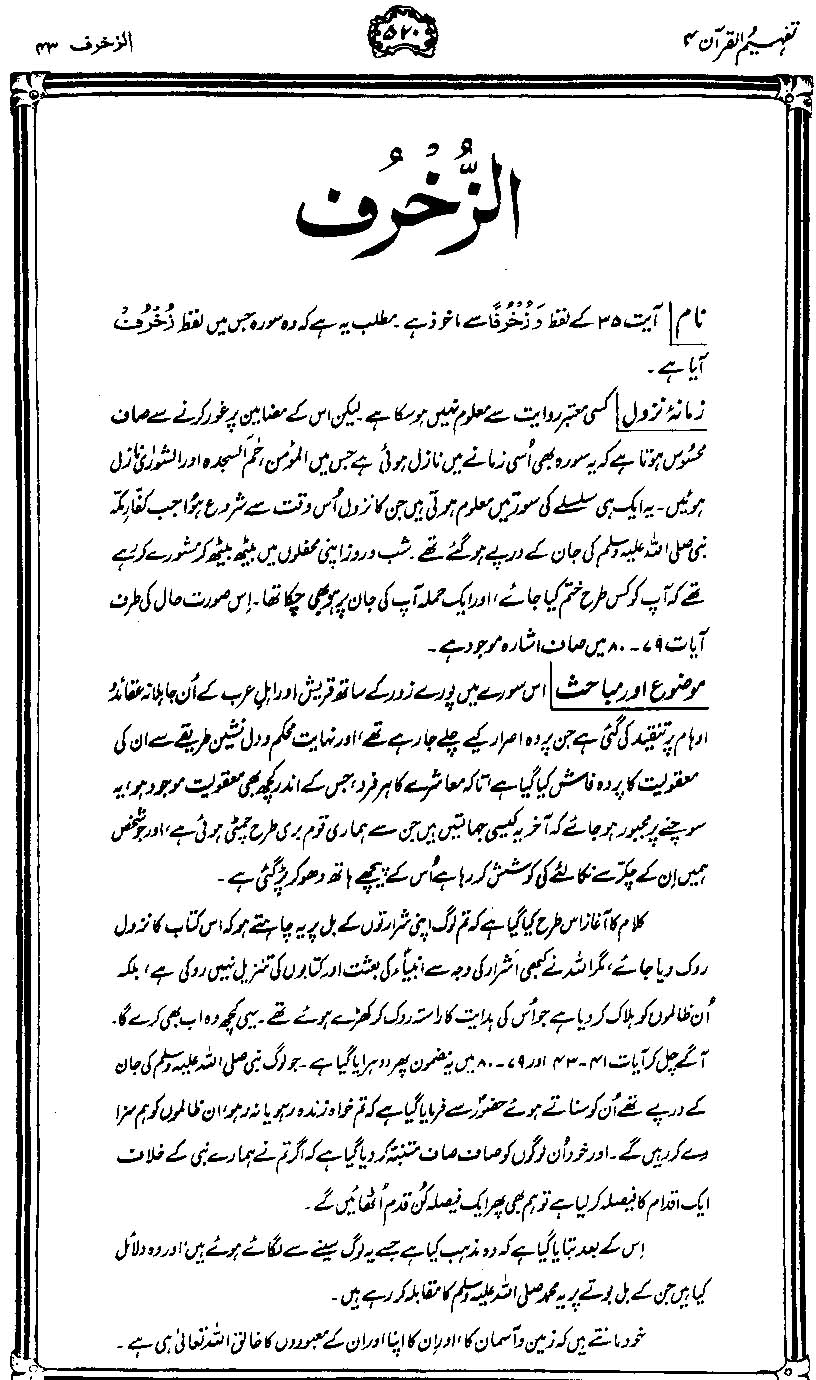 تفہیم القرآن ۴
۵۲۰
الزخرف ۴۳
الزُّخْرُف
نام | آیت ۳۵ کے لفظ وَزُخْرُفًا سے ماخوذ ہے۔ مطلب یہ ہے کہ وہ سورہ جس میں لفظ زُخْرُف
آیا ہے۔
زمانۂ نزول | کسی معتبر روایت سے معلوم نہیں ہو سکا ہے۔ لیکن اس کے مضامین پر غور کرنے سے صاف
محسُوس ہوتا ہے کہ یہ سورہ بھی اُسی زمانے میں نازل ہوئی ہے جس میں المؤمن، حٰم السجدہ اور الشوریٰ نازل
ہوئیں۔ یہ ایک ہی سلسلے کی سورتیں معلوم ہوتی ہیں جن کا نزول اُس وقت سے شروع ہؤا جب کفّارِ مکّہ
نبی صلی اللہ علیہ وسلم کی جان کے درپے ہو گئے تھے۔ شب و روز اپنی محفلوں میں بیٹھ بیٹھ کر مشورے کر رہے
تھے کہ آپ کو کس طرح ختم کیا جائے، اور ایک حملہ آپ کی جان پر ہو بھی چکا تھا۔ اِس صورت حال کی طرف
آیات ۷۹-۸۰ میں صاف اشارہ موجود ہے۔
موضوع اور مباحث | اس سورے میں پورے زور کے ساتھ قریش اور اہل عرب کے اُن جاہلانہ عقائد و
اوہام پر تنقید کی گئی ہے جن پر وہ اصرار کیے چلے جا رہے تھے، اور نہایت محکم و دل نشین طریقے سے ان کی
معقولیت کا پردہ فاش کیا گیا ہے، تاکہ معاشرے کا ہر فرد، جس کے اندر کچھ بھی معقولیت موجود ہو، یہ
سوچنے پر مجبور ہو جائے کہ آخر یہ کیسی جہالتیں ہیں جن سے ہماری قوم بری طرح چمٹی ہوئی ہے، اور جو شخص
ہمیں اِن کے چکّر سے نکالنے کی کوشش کر رہا ہے اُس کے پیچھے ہاتھ دھو کر پڑ گئی ہے۔
کلام کا آغاز اس طرح کیا گیا ہے کہ تم لوگ اپنی شرارتوں کے بل پر یہ چاہتے ہو کہ اس کتاب کا نزول
روک دیا جائے، مگر اللہ نے کبھی اَشرار کی وجہ سے انبیاؑء کی بعثت اور کتابوں کی تنزیل نہیں روکی ہے، بلکہ
اُن ظالموں کو ہلاک کر دیا ہے جو اُس کی ہدایت کا راستہ روک کر کھڑے ہوئے تھے۔ یہی کچھ وہ اب بھی کرے گا۔
آگے چل کر آیات ۴۱-۴۳ اور ۷۹-۸۰ میں یہ مضمون پھر دوہرایا گیا ہے۔ جو لوگ نبی صلی اللہ علیہ وسلم کی جان
کے درپے تھے اُن کو سناتے ہوئے حضورؐ سے فرمایا گیا ہے کہ تم خواہ زندہ رہو یا نہ رہو، ان ظالموں کو ہم سزا
دے کر رہیں گے۔ اور خود اُن لوگوں کو صاف صاف متنبّہ کر دیا گیا ہے کہ اگر تم نے ہمارے نبی کے خلاف
ایک اقدام کا فیصلہ کر لیا ہے تو ہم بھی پھر ایک فیصلہ کُن قدم اُٹھائیں گے۔
اِس کے بعد بتایا گیا ہے کہ وہ مذہب کیا ہے جسے یہ لوگ سینے سے لگائے ہوئے ہیں، اور وہ دلائل
کیا ہیں جن کے بل بوتے پر یہ محمد صلی اللہ علیہ وسلم کا مقابلہ کر رہے ہیں۔
خود مانتے ہیں کہ زمین و آسمان کا، اور اِن کا اپنا اور ان کے معبودوں کا خالق اللہ تعالیٰ ہی ہے۔